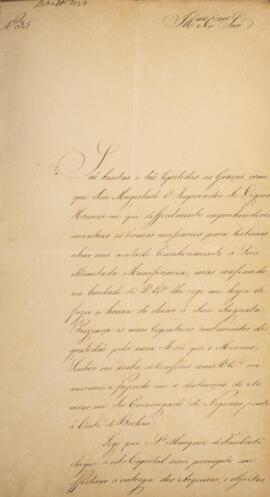 Nº 35
Illmo. e Exmo. Snr.
São tantas e tão repetidas as Graças com
que Sua Magestade O Imperador Se Digna
Honrar-me que difficilmente emprehenderia
encontrar os termos necessarios para testemu-
nhar meu acatado reconhecimento à Sua
Illimitada Munificencia, mas confiando
na bondade de V. Exa. lhe rogo me haja de
fazer a honra de elevar à Sua Augusta
Presença os meus respeitosos sentimentos de
gratidão pela nova Mercê que o Mesmo
Senhor me acaba de Conferir como V. Exa. me
annuncia fazendo-me a distincção de No-
mear-me Seo Encarregado de Negocios junto
à Corte de Berlim.
Logo que o Sr. Marquez de Taubaté
chegue a esta Capital serei prompto em
effectuar a entrega dos Arquivos, e objectos